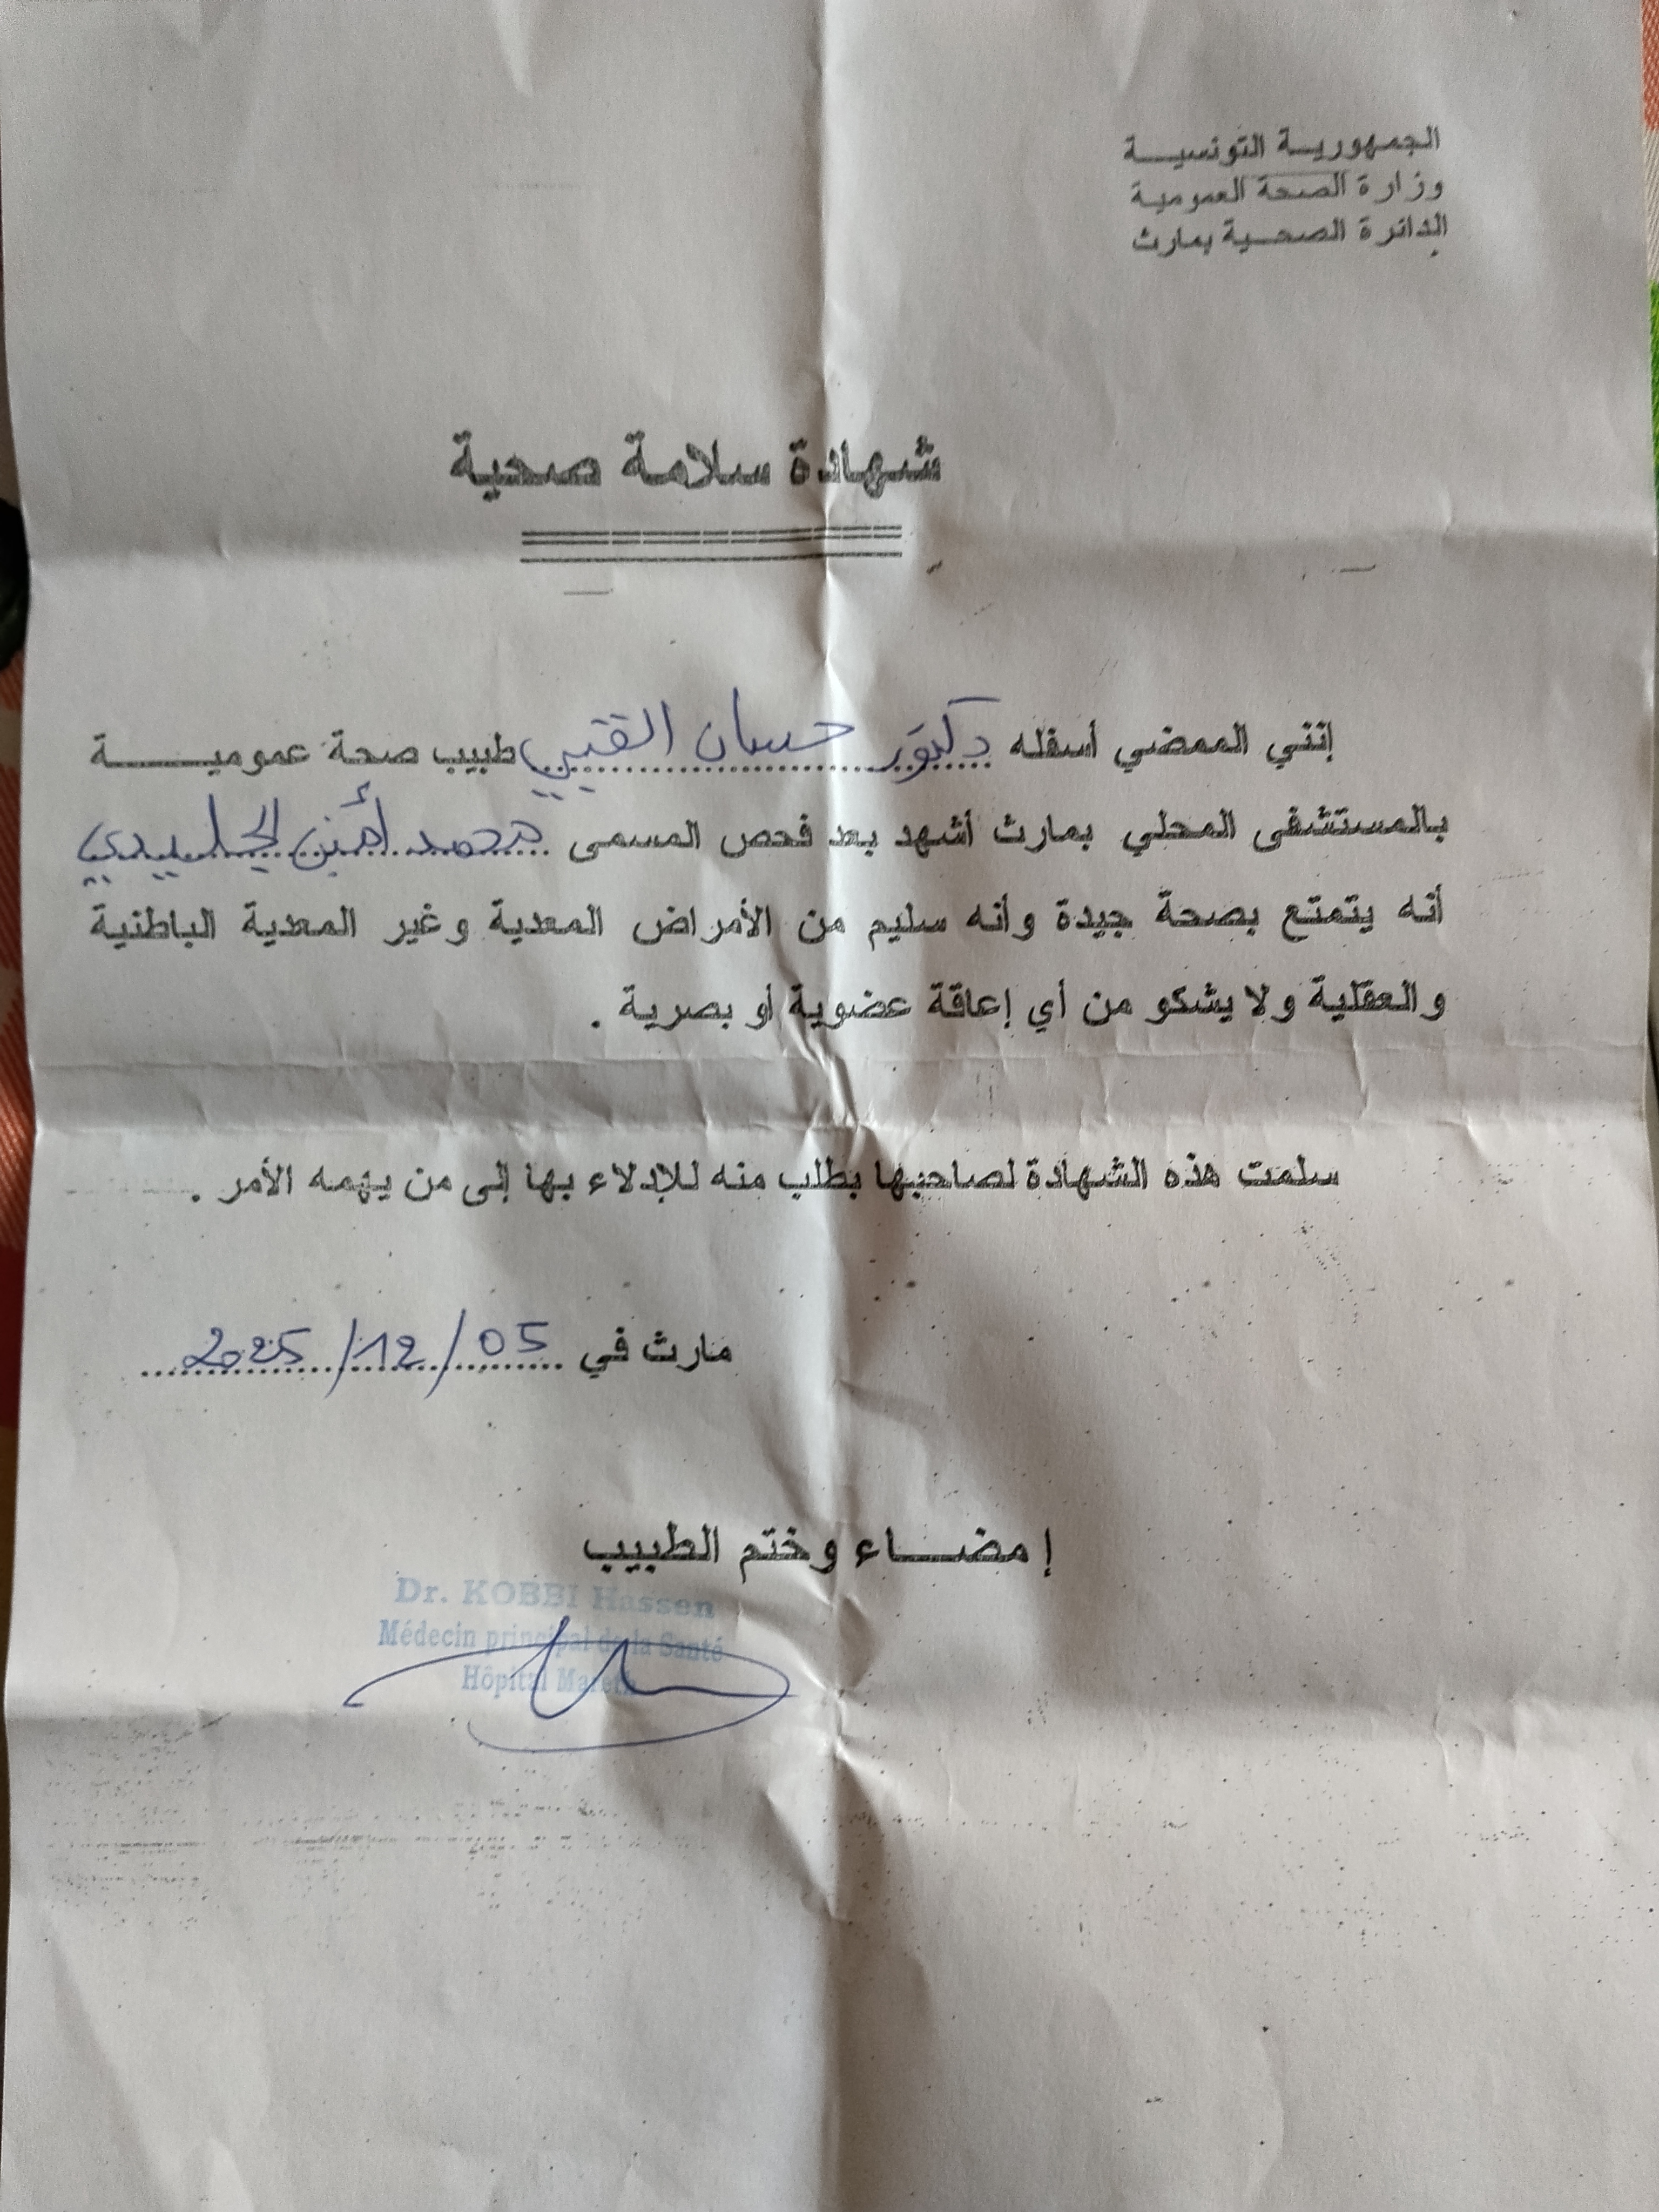 الجمهورية التونسية
وزارة الصحة العمومية
الدائرة الصحية بمارث
شهادة سلامة صحية
إنني الممضي أسفله دكتور حسان القبي طبيب صحة عمومية
بالمستشفى المحلي بمارث أشهد بعد فحص المسمى محمد أمين الجليدي
أنه يتمتع بصحة جيدة وأنه سليم من الأمراض المعدية وغير المعدية الباطنية
والعقلية ولا يشكو من أي إعاقة عضوية أو بصرية .
سلمت هذه الشهادة لصاحبها بطلب منه للإدلاء بها إلى من يهمه الأمر .
مارث في 05/12/2025
إمضاء وختم الطبيب
Dr. KOBBI Hassen
Médecin principal de la Santé
Hôpital Mareth